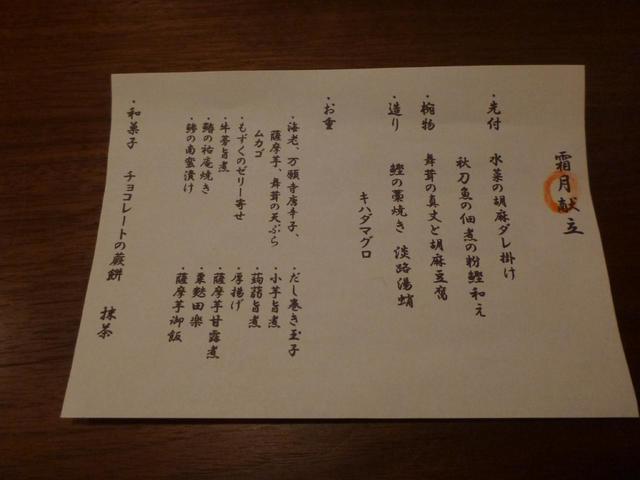 霜月献立
・先付 水菜の胡麻ダレ掛け
秋刀魚の佃煮の粉鰹和え
・椀物 舞茸の真丈と胡麻豆腐
・造り 鰹の藁焼き 淡路湯蛸
キハダマグロ
・お重
・海老、万願寺唐辛子、
薩摩芋、舞茸の天ぷら
ムカゴ
・もずくのゼリー寄せ
・牛蒡旨煮
・鰆の祐庵焼き
・鯵の南蛮漬け
・だし巻き玉子
・小芋旨煮
・蒟蒻旨煮
・厚揚げ
・薩摩芋甘露煮
・粟麩田楽
・薩摩芋御飯
・和菓子 チョコレートの蕨餅 抹茶